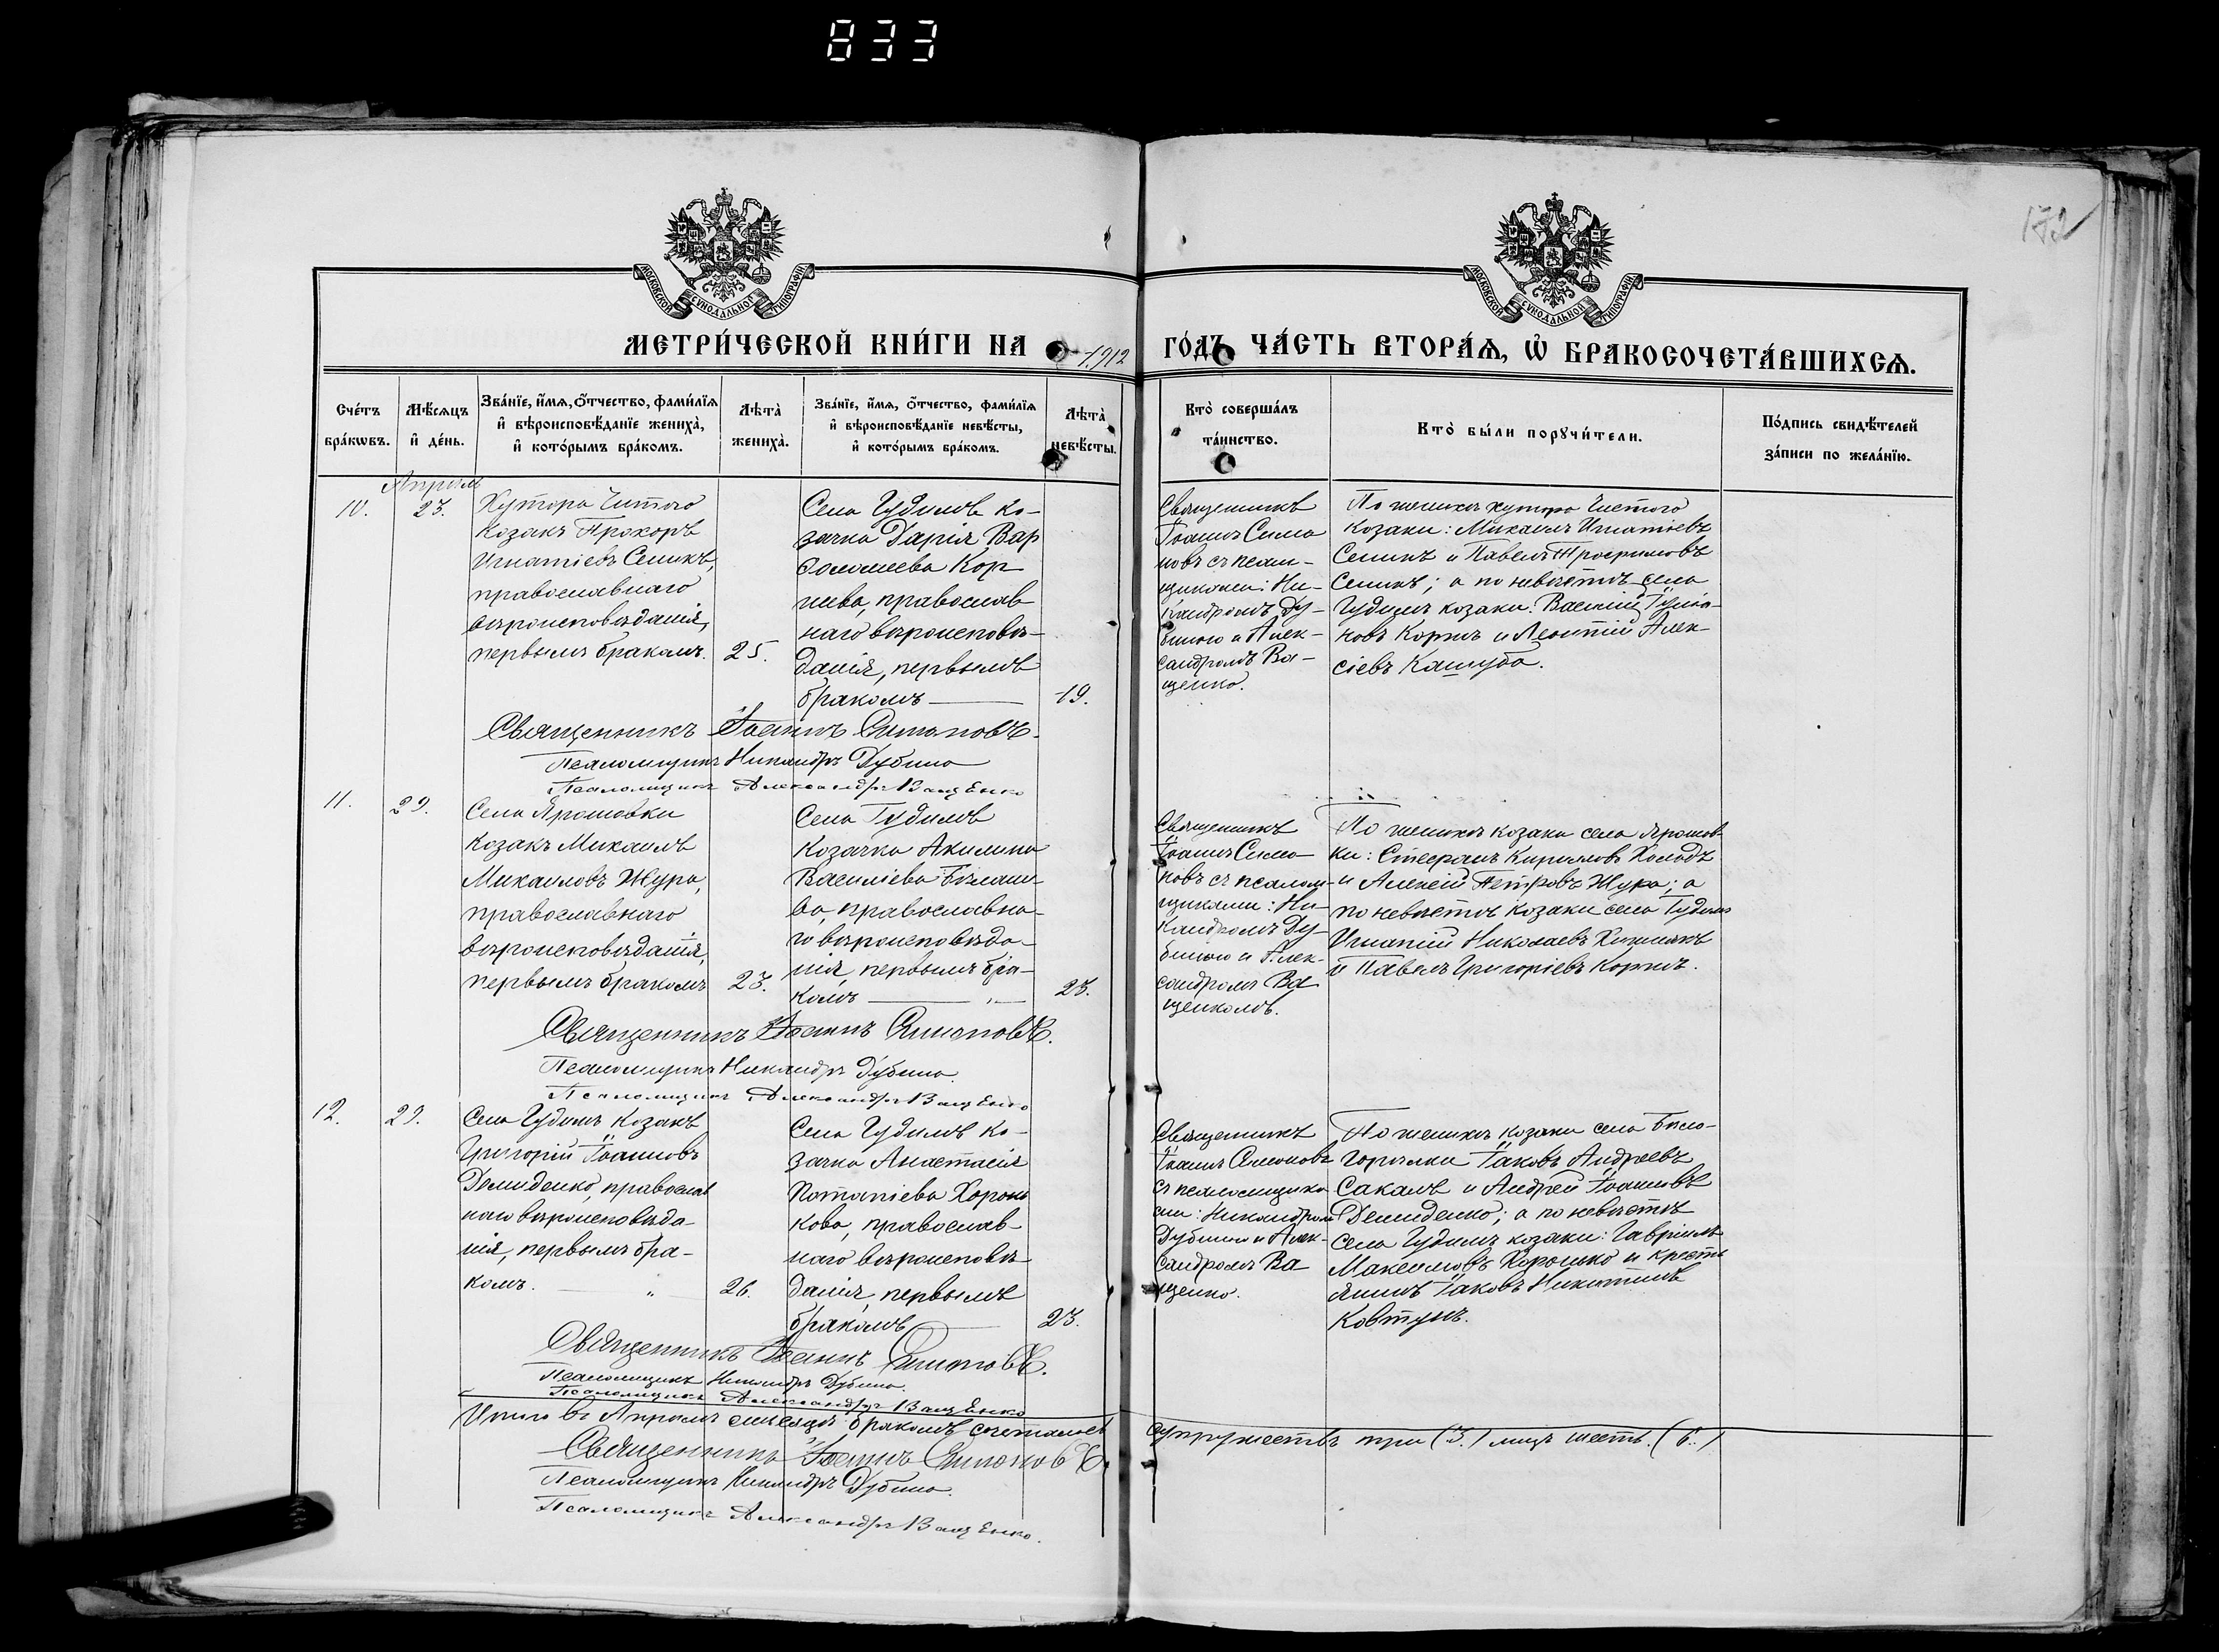 833
172
МОСКОВСКОЙ СѴНОДАЛЬНОЙ ТИПОГРАФІИ
МОСКОВСКОЙ СѴНОДАЛЬНОЙ ТИПОГРАФІИ
МЕТРИ́ЧЕСКОЙ КНИ́ГИ НА 1912 ГО́ДЪ ЧА́СТЬ ВТОРА́Ѧ, Ѡ҆ БРАКОСОЧЕТА́ВШИХСѦ.
Сче́тъ бра́кѡвъ.
Мѣ́сѧцъ и҆ де́нь.
Зва́нїе, и҆́мѧ, ѻ҆́тчество, фами́лїѧ и҆ вѣроисповѣ́данїе жениха̀, и҆ кото́рымъ бра́комъ.
Лѣта̀ жениха̀.
Зва́нїе, и҆́мѧ, ѻ҆́тчество, фами́лїѧ и҆ вѣроисповѣ́данїе невѣ́сты, и҆ кото́рымъ бра́комъ.
Лѣта̀ невѣ́сты.
Кто̀ соверша́лъ та́инство.
Кто̀ бы́ли порꙋчи́тели.
По́дпись свидѣ́телей за́писи по жела́нїю.
Апрѣль
10.
23.
Хутора Чистого
Козакъ Прохоръ
Игнатіевъ Сеникъ,
православнаго
вѣроисповѣданія,
первымъ бракомъ.
25.
Села Гудимовъ ко-
зачка Дарія Вар
ѳоломеева Кор
нева, православ
наго вѣроисповѣ-
данія, первымъ
бракомъ
19.
Священникъ
Іоаннъ Симо
новъ съ псалм-
щиками: Ни-
кандромъ Ду-
биною и Алек-
сандромъ Ва-
щенко.
По женихѣ хутора Чистого
Козаки: Михаилъ Игнатіевъ
Сеникъ и Павелъ Трофимовъ
Сеникъ; а по невѣстѣ села
Гудимъ козаки: Василій
новъ Коржъ и Леонтій Алек-
сіевъ Кашуба.
Священникъ Іоаннъ Симоновъ.
Псаломщикъ Никандръ Дубина
Псаломщикъ Александръ Ващенко
11.
29.
Села Ярошовки
Козакъ Михаилъ
Михаиловъ Жура,
православнаго
вѣроисповѣданія,
первымъ бракомъ
23.
Села Гудимовъ
Козачка Акилина
Василіева Білаш-
ва, православна-
го вѣроисповѣда-
нія, первымъ бра-
комъ
23.
Священникъ
Іоаннъ Симо
новъ съ псалом-
щиками: Ни-
кандромъ Ду-
биною и Алек-
сандромъ Ва
щенкомъ.
По женихѣ козаки села Ярошов
ки: Стефанъ Кириловъ Холодъ
и Алексій Петровъ Жура; а
по невѣстѣ козаки села Гудимъ
Игнатій Николаевъ
и Павелъ Григоріевъ Коржъ.
Священникъ Іоаннъ Симоновъ.
Псаломщикъ Никандръ Дубина.
Псаломщикъ Александръ Ващенко
12.
29.
Села Гудимъ Козакъ
Григорій Іоанновъ
Демиденко, православ
наго вѣроисповѣда-
нія, первымъ бра-
комъ.
26.
Села Гудимовъ ко-
зачка Анастасія
Потапіева Хорош
кова, православ
наго вѣроисповѣ
данія, первымъ
бракомъ
23.
Священникъ
Іоаннъ Симоновъ
съ псаломщика
ми: Никандромъ
Дубиною и Алек-
сандромъ Ва
щенко.
По женихѣ козаки села Бѣло-
горилки Іаковъ Андреевъ
Сакалъ и Андрей Іоанновъ
Демиденко; а по невѣстѣ
села Гудимъ козаки: Гавріилъ
Максимовъ Хорошко и кресть
янинъ Іаковъ Никитинъ
Ковтунъ.
Священникъ Іоаннъ Симоновъ.
Псаломщикъ Никандръ Дубина.
Псаломщикъ Александръ Ващенко
Итого въ Апрѣлѣ мѣсяцѣ бракомъ сочеталось супружествъ три (3.) лицъ шесть. (6.)
Священникъ Іоаннъ Симоновъ.
Псаломщикъ Никандръ Дубина.
Псаломщикъ Александръ Ващенко.